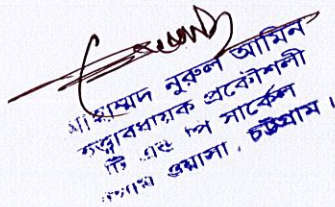 মোহাম্মদ নুরুল আমিন
তত্ত্বাবধায়ক প্রকৌশলী
এন্ড পি সার্কেল
ওয়াসা, চট্টগ্রাম।